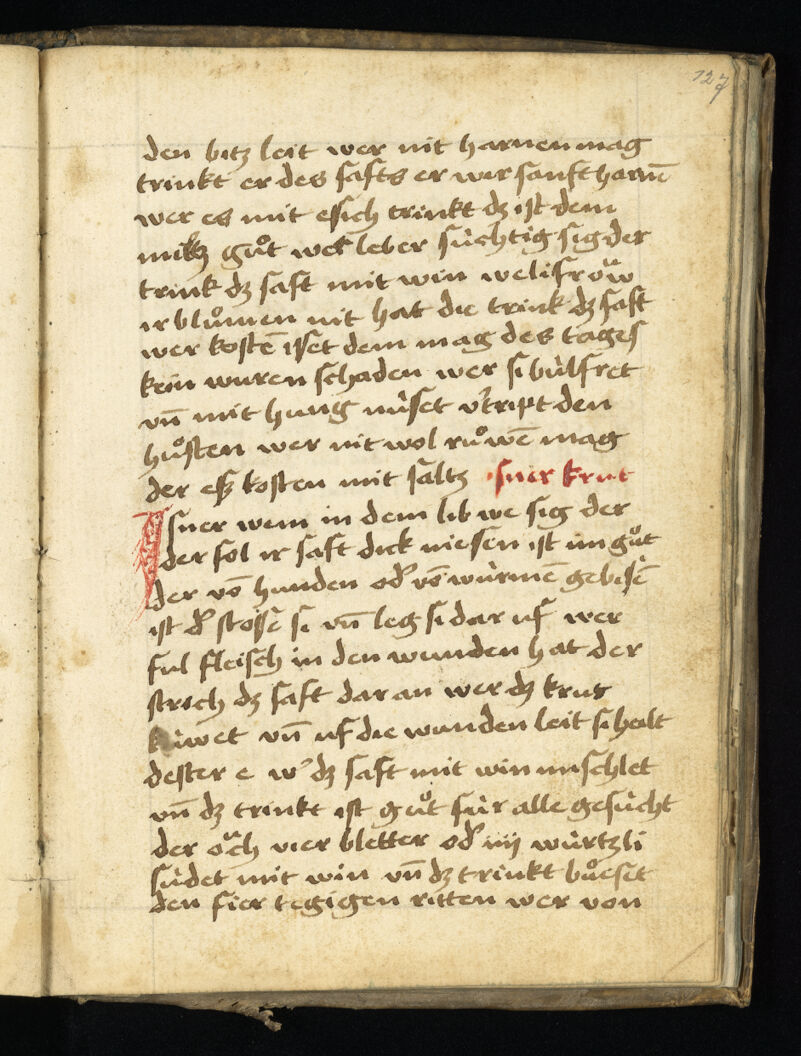 127
den bitz leit wer nit harnen mag
trinkt er des safts er wir sanft harnē
wer es mit esich trinkt dz ist dem
miltz gůt wer leber sùchtig sig der
trink dz saft mit win weli frow̎
ir blůmen nit hat die trink dz saft
wer kostē isset dem mag des tages
kein wuren schaden wer si bùlfret
vn̄ mit hung nùset v͛tript den
hůsten wer nit wol růwē mag
der eß kosten mit saltz suer krut
Isuer wem in dem lib we sig der
der sol ir saft dick niesen ist im gůt
der vō hunden od͛ vō wùrmē gebisē
ist d͛ stosse si vn̄ leg si dar uf wer
ful fleisch in den wunden hat der
strich dz saft dar an wer dz krut
kùwet vn̄ uf die wunden leit si heilt
dester e w͛ dz saft mit win mischlet
vn̄ dz trinkt ist gůt fùr alle gesùcht
der och vier bletter od͛ iiij wùrtzli
sùdet mit win vn̄ dz trinkt bůeset
den fier tegigen ritten wer von